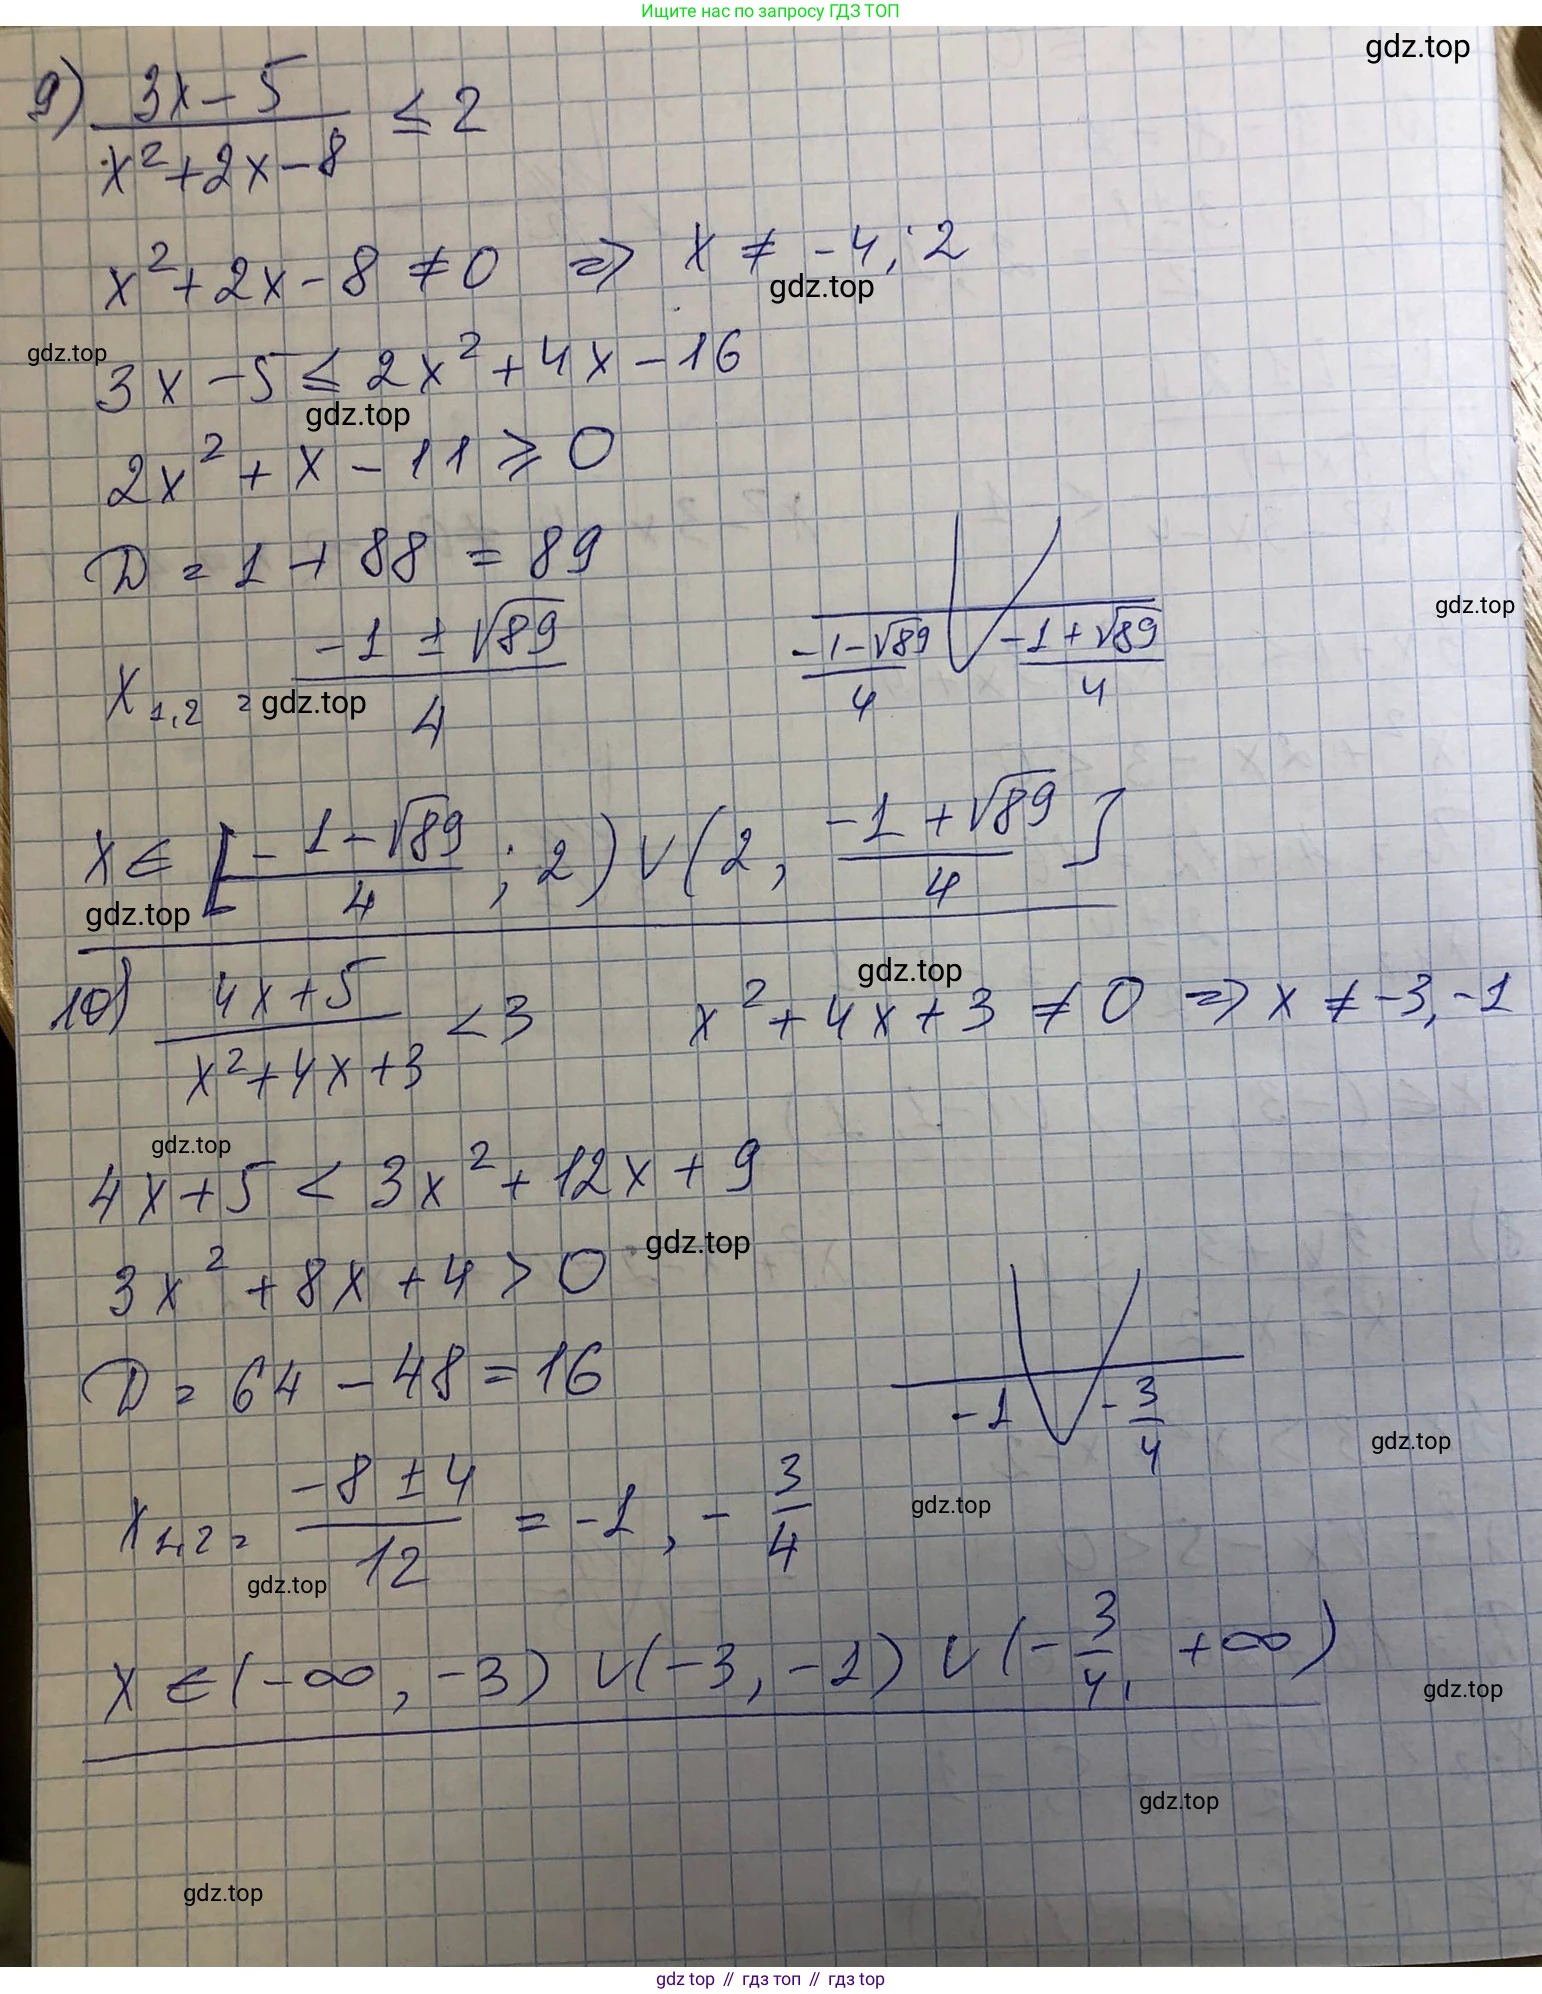 Ищите нас по запросу ГДЗ ТОП
gdz.top
9) (3x-5)/(x²+2x-8) ≤ 2
x²+2x-8 ≠ 0 ⇒ x ≠ -4; 2
gdz.top
gdz.top
3x-5 ≤ 2x²+4x-16
gdz.top
2x²+x-11 ≥ 0
D = 1+88 = 89
gdz.top
x₁,₂ = (-1 ± √89)/4
(-1-√89)/4 (-1+√89)/4
gdz.top
x ∈ [(-1-√89)/4 ; 2) ∪ (2, (-1+√89)/4]
gdz.top
gdz.top
10) (4x+5)/(x²+4x+3) < 3 x²+4x+3 ≠ 0 ⇒ x ≠ -3, -1
gdz.top
4x+5 < 3x²+12x+9
gdz.top
3x²+8x+4 > 0
D = 64-48 = 16
-1 -3/4
gdz.top
x₁,₂ = (-8 ± 4)/12 = -1, -3/4
gdz.top
gdz.top
x ∈ (-∞, -3) ∪ (-3, -1) ∪ (-3/4, +∞)
gdz.top
gdz.top
gdz.top
gdz top // гдз топ // gdz top